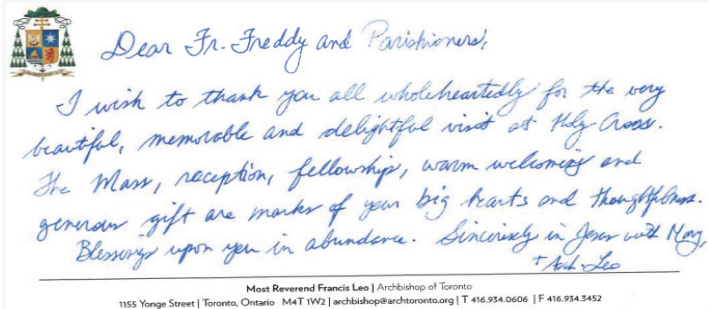 Dear Fr. Freddy and Parishioners,
I wish to thank you all wholeheartedly for the very
beautiful, memorable and delightful visit at Holy Cross.
The Mass, reception, fellowship, warm welcoming and
generous gift are marks of your big hearts and thoughtfulness.
Blessings upon you in abundance. Sincerely in Jesus with Mary,
+ Arch. Leo
Most Reverend Francis Leo | Archbishop of Toronto
1155 Yonge Street | Toronto, Ontario M4T 1W2 | archbishop@archtoronto.org | T 416.934.0606 | F 416.934.3452